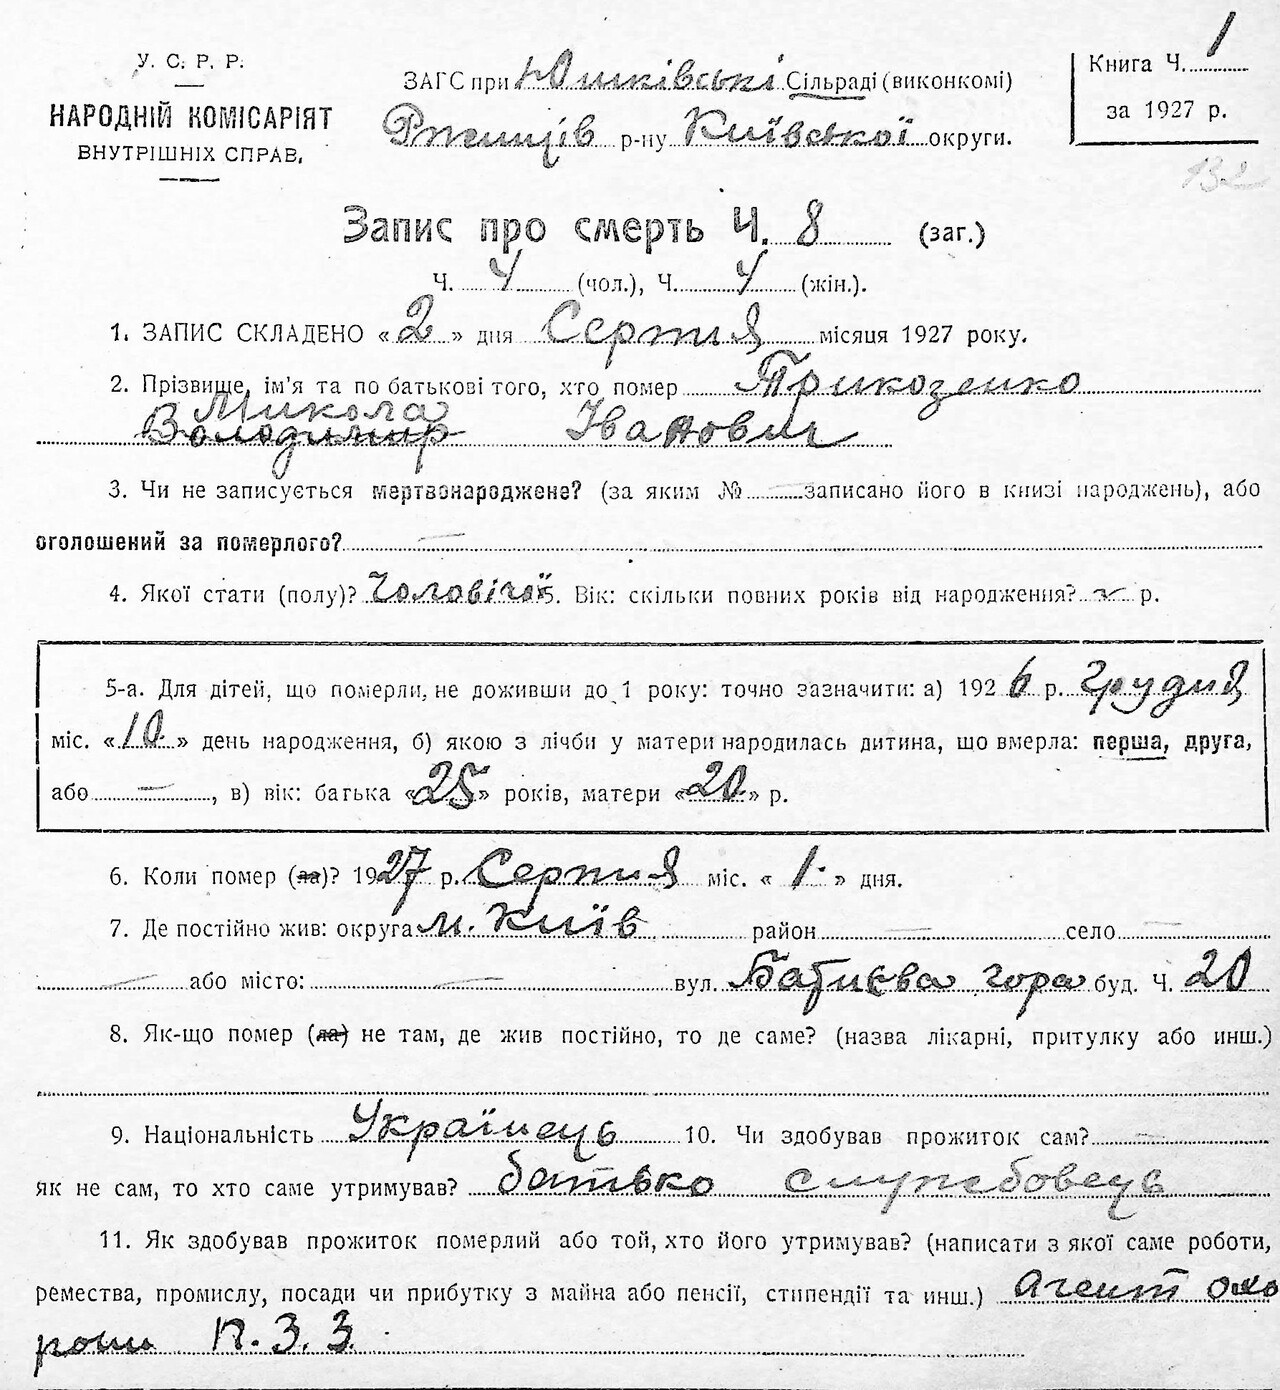 У. С. Р. Р.
НАРОДНІЙ КОМІСАРІЯТ
ВНУТРІШНІХ СПРАВ.
ЗАГС при Юшківські Сільраді (виконкомі)
Ржищів р-ну Київської округи.
Книга Ч. 1
за 1927 р.
132
Запис про смерть Ч. 8 (заг.)
Ч. 4 (чол.), Ч. 4 (жін.).
1. ЗАПИС СКЛАДЕНО «2» дня Серпня місяця 1927 року.
2. Прізвище, ім'я та по батькові того, хто помер Трикозенко
Микола
Володимир Іванович
3. Чи не записується мертвонароджене? (за яким № — записано його в книзі народжень), або
оголошений за померлого? —
4. Якої стати (полу)? Чоловічої 5. Вік: скільки повних років від народження? — р.
5-а. Для дітей, що померли, не доживши до 1 року: точно зазначити: а) 1926 р. Грудня
міс. «10» день народження, б) якою з лічби у матери народилась дитина, що вмерла: перша, друга,
або —, в) вік: батька «25» років, матери «20» р.
6. Коли помер (ла)? 1927 р. Серпня міс. «1» дня.
7. Де постійно жив: округа м. Київ район — село —
— або місто: — вул. Батиєва гора буд. Ч. 20
8. Як-що помер (ла) не там, де жив постійно, то де саме? (назва лікарні, притулку або инш.)
9. Національність Українець 10. Чи здобував прожиток сам? —
як не сам, то хто саме утримував? батько службовець
11. Як здобував прожиток померлий або той, хто його утримував? (написати з якої саме роботи,
ремества, промислу, посади чи прибутку з майна або пенсії, стипендії та инш.) Агент охо
рони П. З. З.